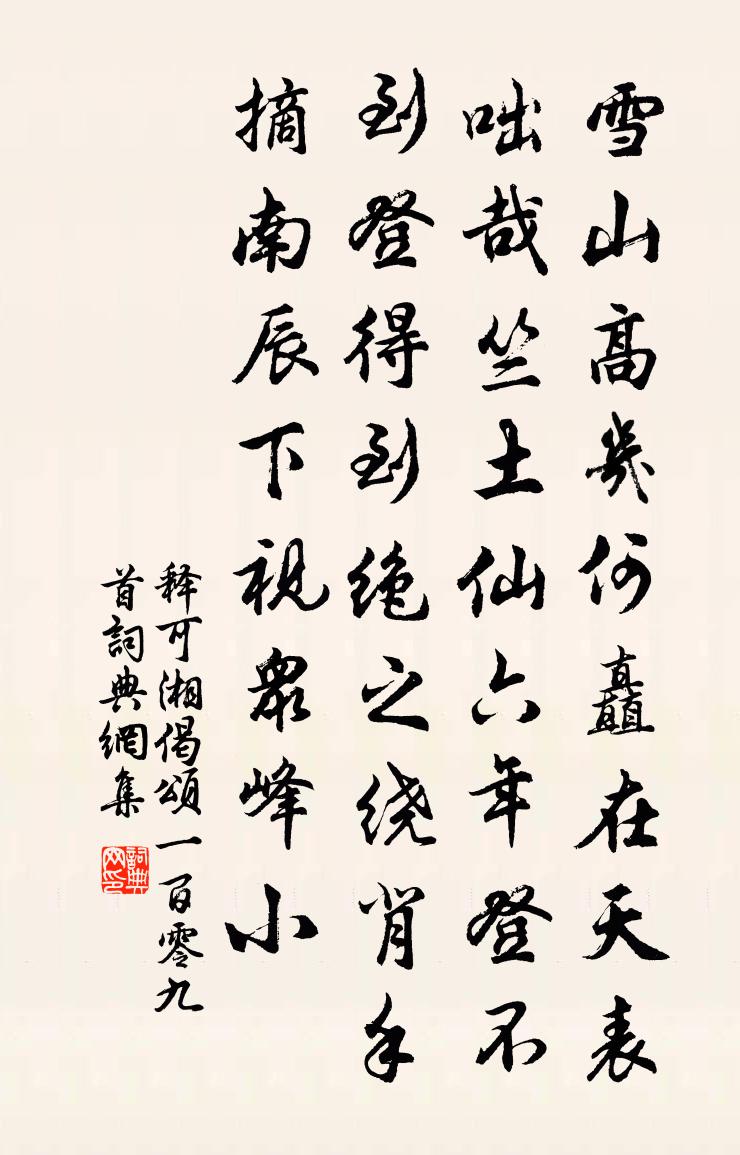 雪山高幾何矗在天表
咄哉竺土仙六年登不
到登得到绝之绕肯手
摘南辰下視衆峰小
释可湘偈頌一百零九
首詞典網集
詞典
网印